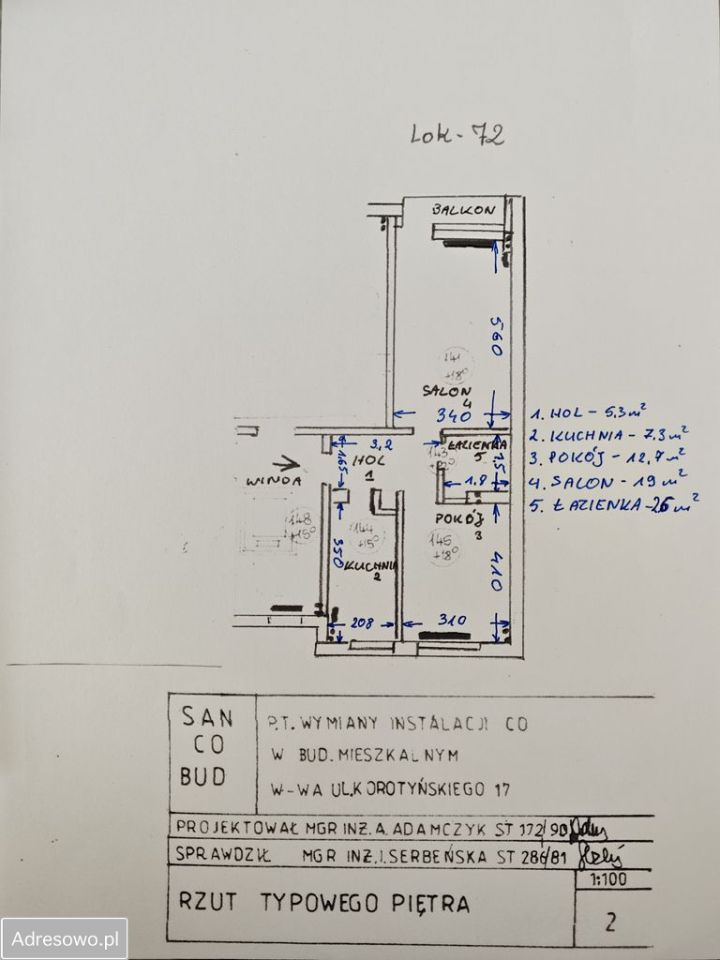 Lok - 72
BALKON
560
141
+18°
SALON
4
340
3,2
ŁAZIENKA
5
143
1,5
165
HOL
1
WINDA
1.8
POKÓJ
3
148
+15°
144
+15°
350
KUCHNIA
2
145
+18°
410
208
310
1. HOL - 5,3 m²
2. KUCHNIA - 7.3 m²
3. POKÓJ - 12,7 m²
4. SALON - 19 m²
5. ŁAZIENKA - 2,6 m²
SAN
CO
BUD
P.T. WYMIANY INSTALACJI CO
W BUD. MIESZKALNYM
W-WA UL.KOROTYŃSKIEGO 17
PROJEKTOWAŁ MGR INŻ. A. ADAMCZYK ST 172/90
SPRAWDZIŁ MGR INŻ. I. SERBEŃSKA ST 286/81
RZUT TYPOWEGO PIĘTRA
1:100
2
Adresowo.pl